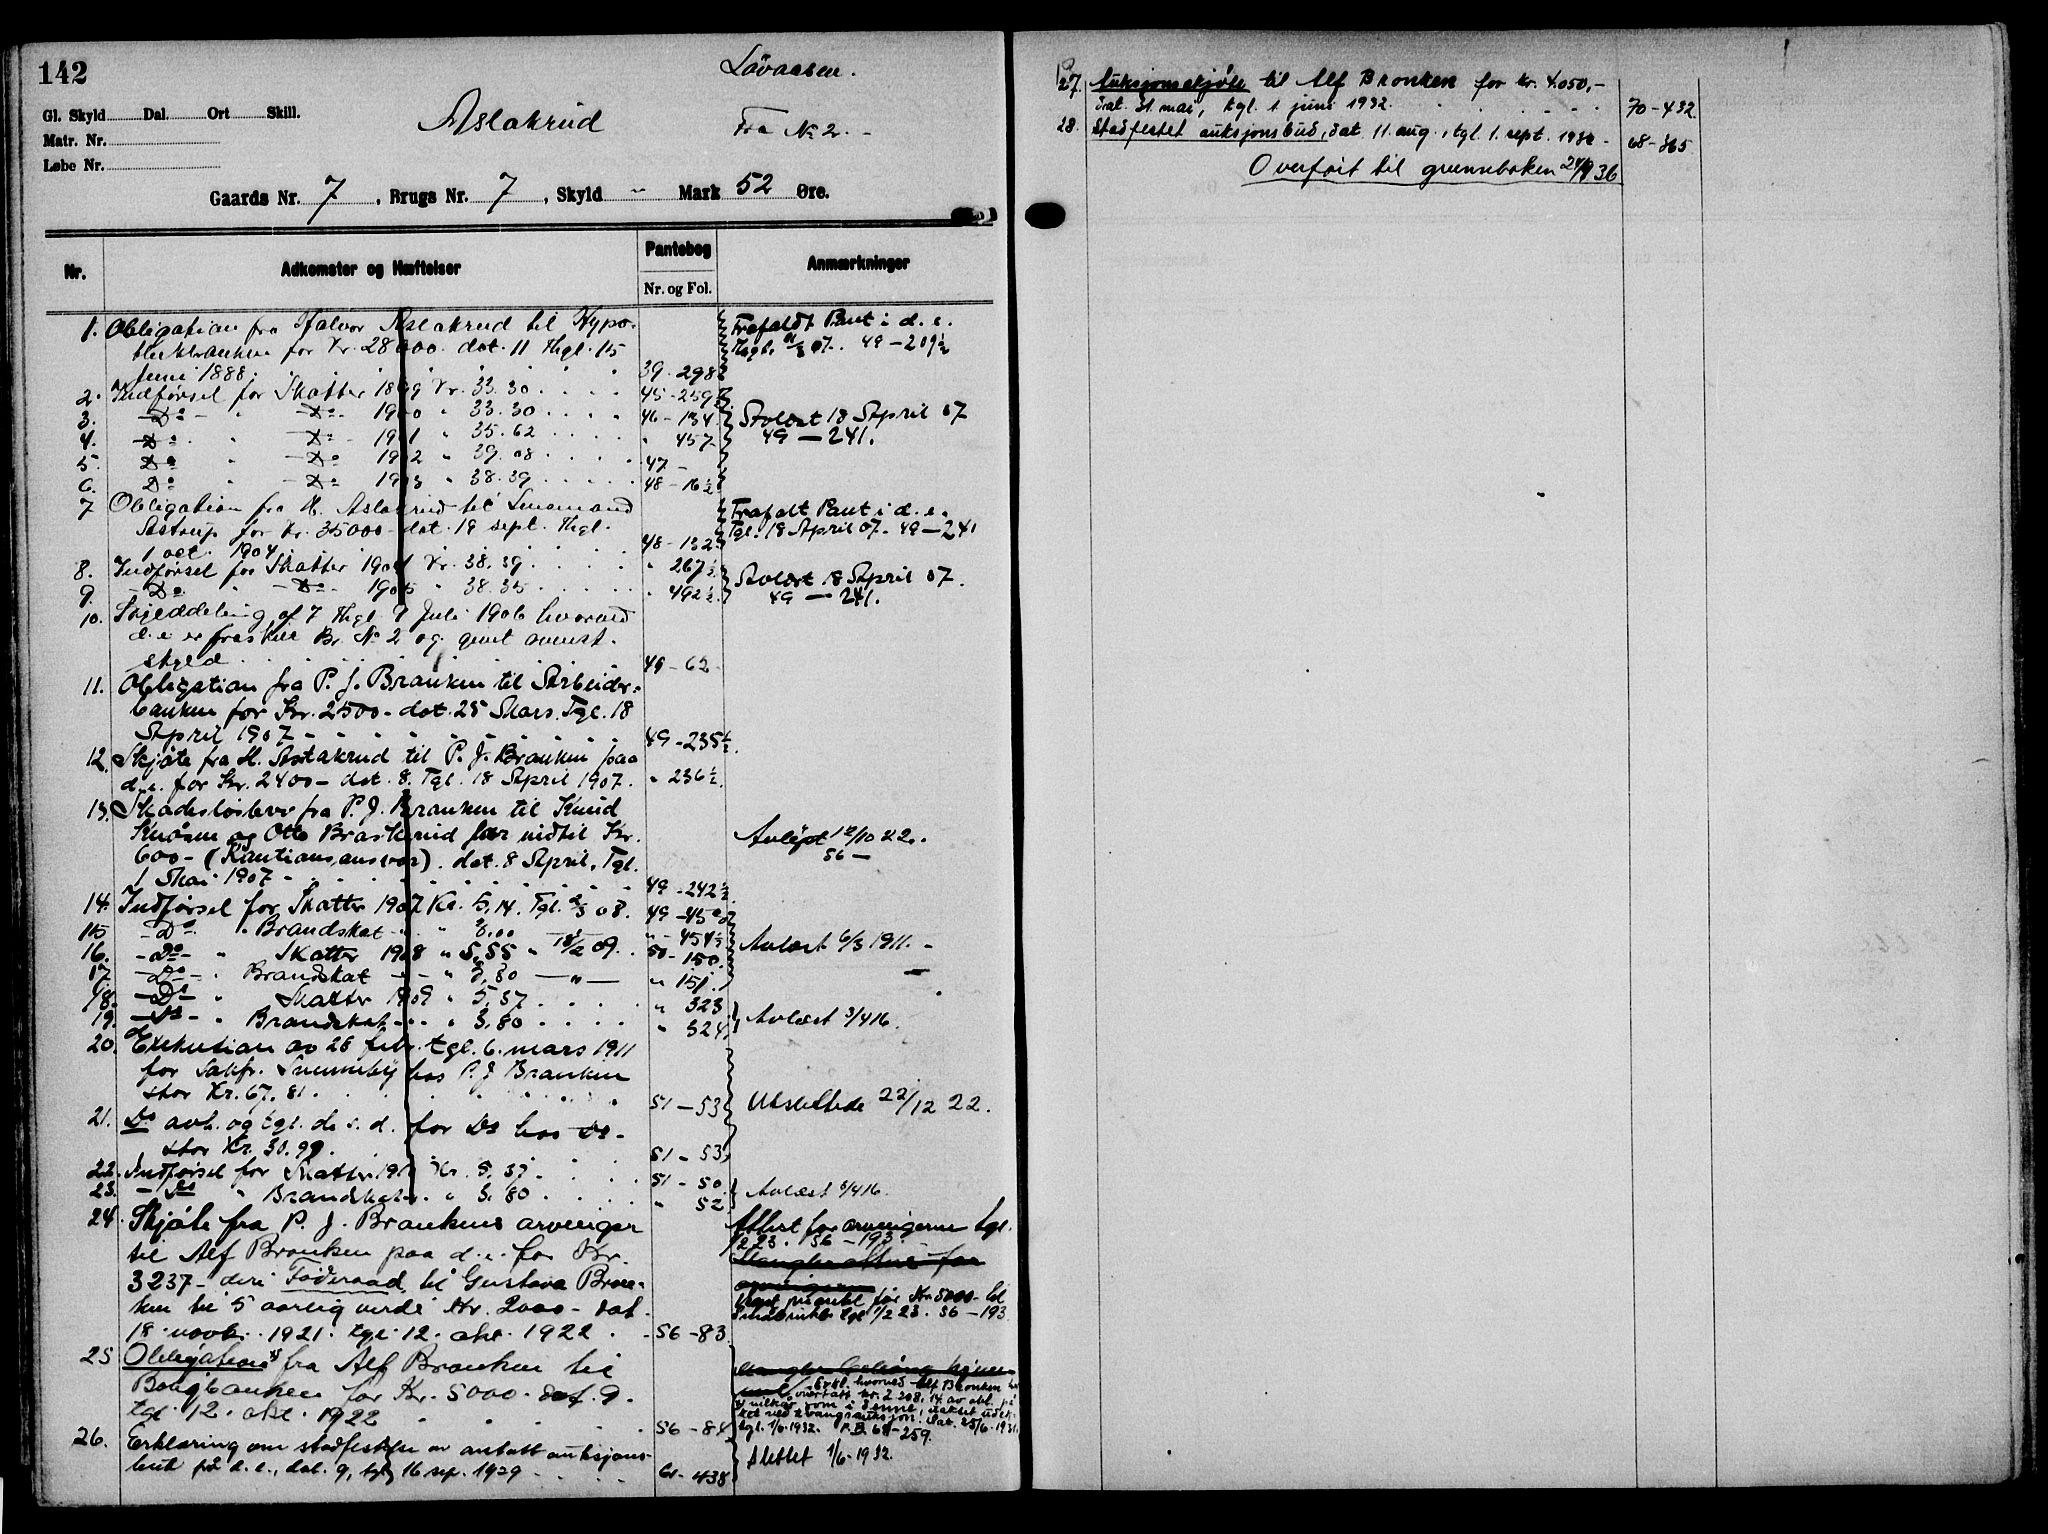 142
Løvaasen.
Gl. Skyld Dal. Ort Skill.
Aslakrud
Fra No 2. -
Matr. Nr.
Løbe Nr.
Gaards Nr. 7, Brugs Nr. 7, Skyld " Mark 52 Øre.
Nr. Adkomster og Hæftelser Pantebog Anmærkninger
Nr. og Fol.
1. Obligation fra Halvor Aslakrud til Hypo-
thekbanken for Kr. 28000. dat. 11 Thgl. 15
Juni 1888. 39-298
Frafaldt Pant i d. e.
Thgl. 07. 49-209½
2. Indførsel for Skatter 1899 Kr. 33.30 45-259
3. -Do- " -Do- 1900 " 33.30 46-134
4. -Do- " -Do- 1901 " 35.62 " 457
5. Do " Do 1902 " 39.08 47-
6. Do " -Do 1903 " 38.39 48-16½
Avlæst 18 April 07
49-241.
7 Obligation fra H. Aslakrud til
Astrup for Kr. 35000- dat. 19 sept. Thgl.
1 oct. 1904 48-132
Frafalt Pant i d. e.
Tgl. 18 April 07. 49-241
8. Indførsel for Skatter 1904 Kr. 38.39 " 267½
9. -Do- -Do- 1905 " 38.35 " 492½
Avlæst 18 April 07.
49-241.
10. Skylddeling af 7 Thgl. 9 Juli 1906 hvorved
d. e. er fraskilt Br. No 2 og givet ovenst.
skyld 49-62
11. Obligation fra P. J. Branken til Arbeider-
banken for Kr. 2500- dat. 25 Mars. Tgl. 18
April 1907 49-235½
12. Skjøte fra H. Aslakrud til P. J. Branken paa
d. e. for Kr. 2400- dat. 8. Tgl. 18 April 1907. " 236½
13. Skadesløsbrev fra P. J. Branken til Knud
og Otto Braskerud for indtil Kr.
600- (Kautionsansvar). dat. 8 April. Tgl.
1 Mai 1907 49-242½
Avlyst 12/10 22.
56-
14. Indførsel for Skatter 1907 Kr. 5,14. Tgl. 08. 49-450
15 -Do- " Brandskat " 3,00 "-454½
16. -Do- " Skatter 1908 " 5,55 " 09. 50-150.
17. -Do- " Brandskat " 3,80 -"- " 151.
Avlæst 6/3 1911. -
18. -Do- " Skatter 1909 " 5,37 " 323
19. -Do- " Brandskat " 3,80 " 324
Avlæst 3/4 16.
20. Exekution av 28 febr. tgl. 6. mars 1911
for Sakfr. hos P. J. Branken
stor Kr. 67.81. 51-53
Utslettede 22/12 22.
21. Do avh. og tgl. d. s. d. for Do hos Do-
stor Kr. 30.99. 51-53
22. Indførsel for Skatter 1910 Kr. 5,37 51-50
23. -Do- " Brandskat " 3,80 " 52
Avlæst 3/4 16.
24. Skjøte fra P. J. Brankens arvinger
til Alf Branken paa d. e. for Kr.
3237- deri Føderaad til Gustava Bran-
ken til 5 aarlig verdi Kr. 2000- dat.
18 novbr. 1921. tgl. 12. okt. 1922. 56-83
Attest for arvingerne tgl.
1/2 23. 56-193.
Mangler attest for
arvingerne
for Kr. 5000- til
tgl. 1/2 23. 56-193
25 Obligation x) fra Alf Branken til
Boligbanken for Kr. 5000- dat. 9.
tgl. 12. okt. 1922 56-84
Erkl. hvorved Alf Bronken har
overtatt kr. 2.208,14 av obl. på
vilkår som i denne, uakset
ved tvangsauksjon, dat. 25/5-1931,
tgl. 1/6-1932. P.B. 68-259.
26. Erklæring om stadfestelse av antatt auksjons-
bud på d. e., dat. 9, tgl. 16 sep. 1929 61-438
Slettet 1/6-1932.
27. Auksjonsskjøte til Alf Bronken for kr. 4.050,-
dat. 31. mai, tgl. 1 juni 1932. 70-432
28. Stadfestet auksjonsbud, dat. 11. aug., tgl. 1. sept. 193 - 68-365
Overført til grunnboken 24/9 36